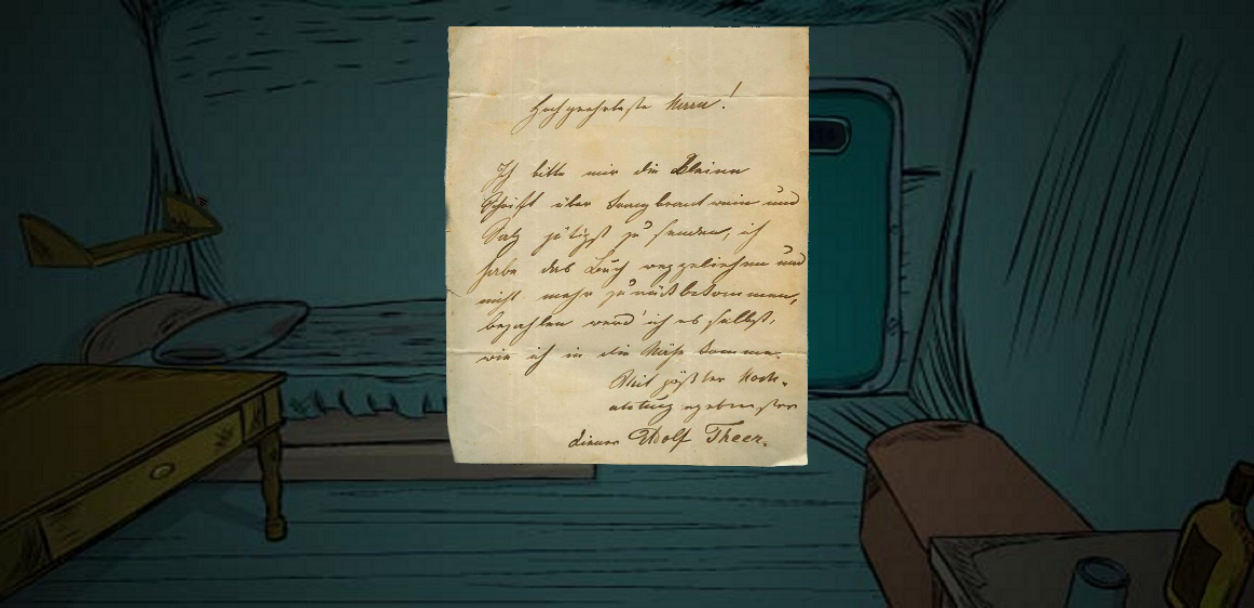 Hochgeehrteste Herrn!
Ich bitte mir die kleine
Schrift über Franzbrantwein und
Salz gütigst zu senden, ich
habe das Buch weggeliehen und
nicht mehr zurückbekommen,
bezahlen werd' ich es selbst,
wie ich in die Nähe komme.
Mit größter Hoch-
achtung ergebenster
diener Adolf Theer.